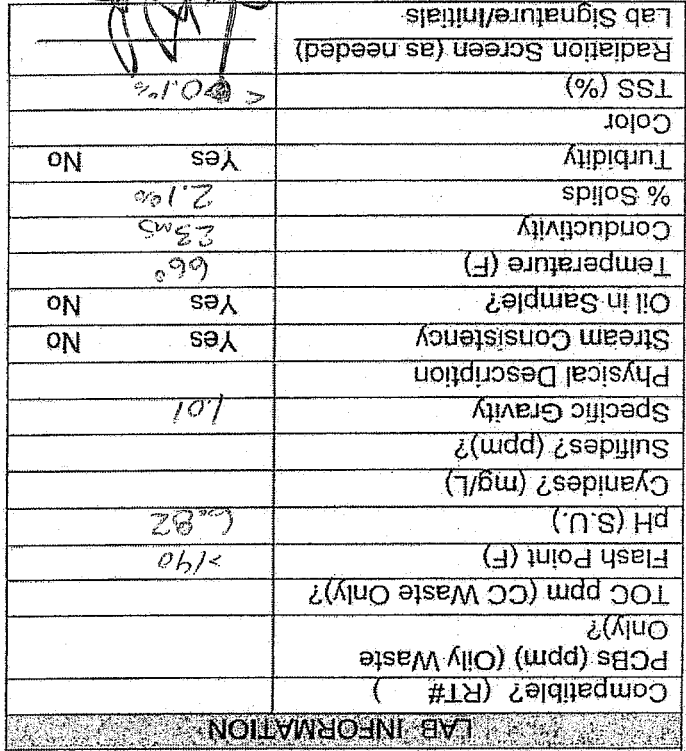 LAB INFORMATION
Compatible? (RT# )
PCBs (ppm) (Oily Waste
Only)?
TOC ppm (CC Waste Only)?
Flash Point (F) >140
pH (S.U.) 6.82
Cyanides? (mg/L)
Sulfides? (ppm)?
Specific Gravity 1.01
Physical Description
Stream Consistency Yes No
Oil in Sample? Yes No
Temperature (F) 66°
Conductivity 23 mS
% Solids 2.1%
Turbidity Yes No
Color
TSS (%) < 0.1%
Radiation Screen (as needed)
Lab Signature/Initials